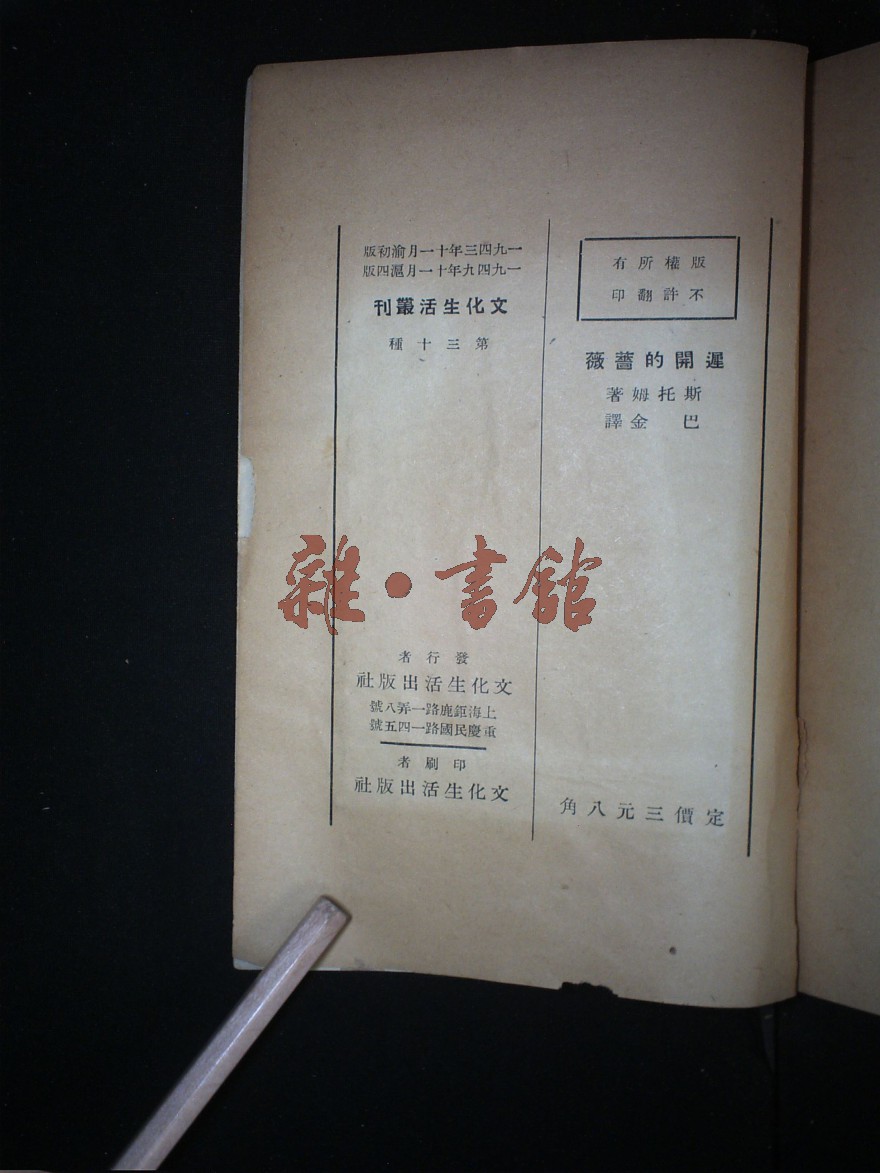 版權所有
不許翻印
遲開的薔薇
斯托姆著
巴金譯
定價三元八角
一九四三年十一月渝初版
一九四九年十一月滬四版
文化生活叢刊
第三十種
發行者
文化生活出版社
上海鉅鹿路一弄八號
重慶民國路一四五號
印刷者
文化生活出版社
雜·書館